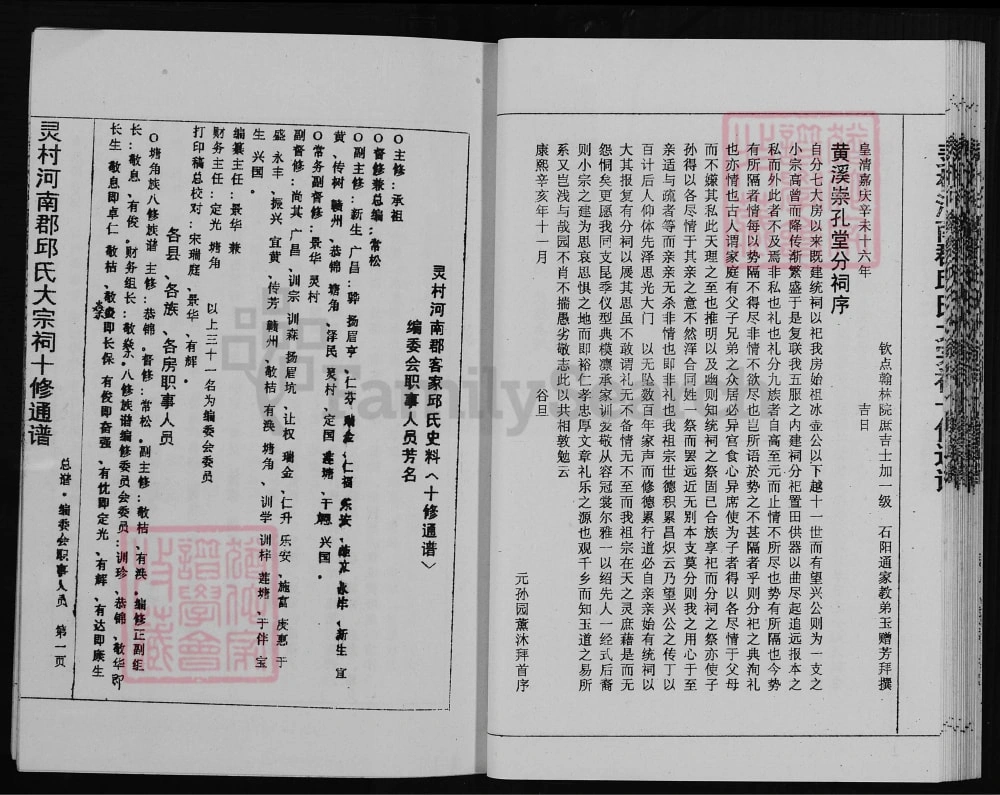 皇清嘉庆辛未十六年
吉日
钦点翰林院庶吉士加一级 石阳通家教弟玉赠芳拜撰
黄溪崇孔堂分祠序
自分七大房以来既建统祠以祀我房始祖冰壶公以下越十一世而有望兴公则为一支之
小宗高曾而降传渐繁盛于是复联我五服之内建祠分祀置田供器以曲尽起追远报本之
私而外此者不及焉非私也礼也礼分九族者自高至元而止情不所尽也势有所隔也今势
有所隔者情每以势隔不得尽非情不欲尽也岂所语於势之不甚隔者乎则分祀之典洵礼
也亦情也古人谓家庭有父子兄弟之众居必异宫食心异席使为子者得以各尽情于父母
而不嫌其私此天理之至也推明以及幽则知统祠之祭固已合族享祀而分祠之祭亦使子
孙得以各尽情于其亲之意不然泽合同姓一祭而罢远近无别本支莫分则我之用心于至
亲适与疏者等而亲亲无杀非情也即非礼也我祖宗世德积累昌炽云乃望兴公之传丁以
百计后人仰体先泽思光大门 以无坠数百年家声而修德累行道必自亲亲始有统祠以
大其报复有分祠以展其思虽不敢谓礼无不备情无不至而我祖宗在天之灵庶藉是而无
怨恫矣更愿我同支昆季仪型典模凛承家训爱敬从容冠裳尔雅一以绍先人一经式后裔
则小宗之建为思哀思惧之地而即裕仁孝忠厚文章礼乐之源也观千乡而知王道之易所
系又岂浅与哉园不肖不揣愚劣敬志此以共相敦勉云
元孙园薰沐拜首序
康熙辛亥年十一月 谷旦
灵村河南郡客家邱氏史料〈十修通谱〉
编委会职事人员芳名
○主修：承祖
○督修兼总编：常松
○副主修：新生 广昌：骅 扬眉亨
黄、传树 赣州、恭锦 塘角、泽民 灵村、定国
○常务副督修：景华 灵村
副督修：尚其 广昌、训宗 训森 扬眉坑、让权 瑞金、仁升 乐安、施富 庆惠 于
盛、永丰、振兴 宜黄、传芳 赣州、敬桔 有涣 塘角、训学 训梓 莲塘、于伴 宝
生 兴国。
编纂主任：景华 兼
财务主任：定光 塘角
打印稿总校对：宋瑞庭、景华、有辉。
以上三十一名为编委会委员
各县、各族、各房职事人员
○塘角族八修族谱 主修：恭锦。督修：常松。副主修：敬桔、有涣。编修正副组
长：敬息、有俊。财务组长：敬燊。八修族谱编修委员会委员：训珍、恭锦、敬华即
长生 敬息即卓仁 敬桔、敬燊即长保 有俊即奋强、有忱即定光、有辉、有达即康生
灵村河南郡邱氏大宗祠十修通谱
总谱·编委会职事人员 第一页